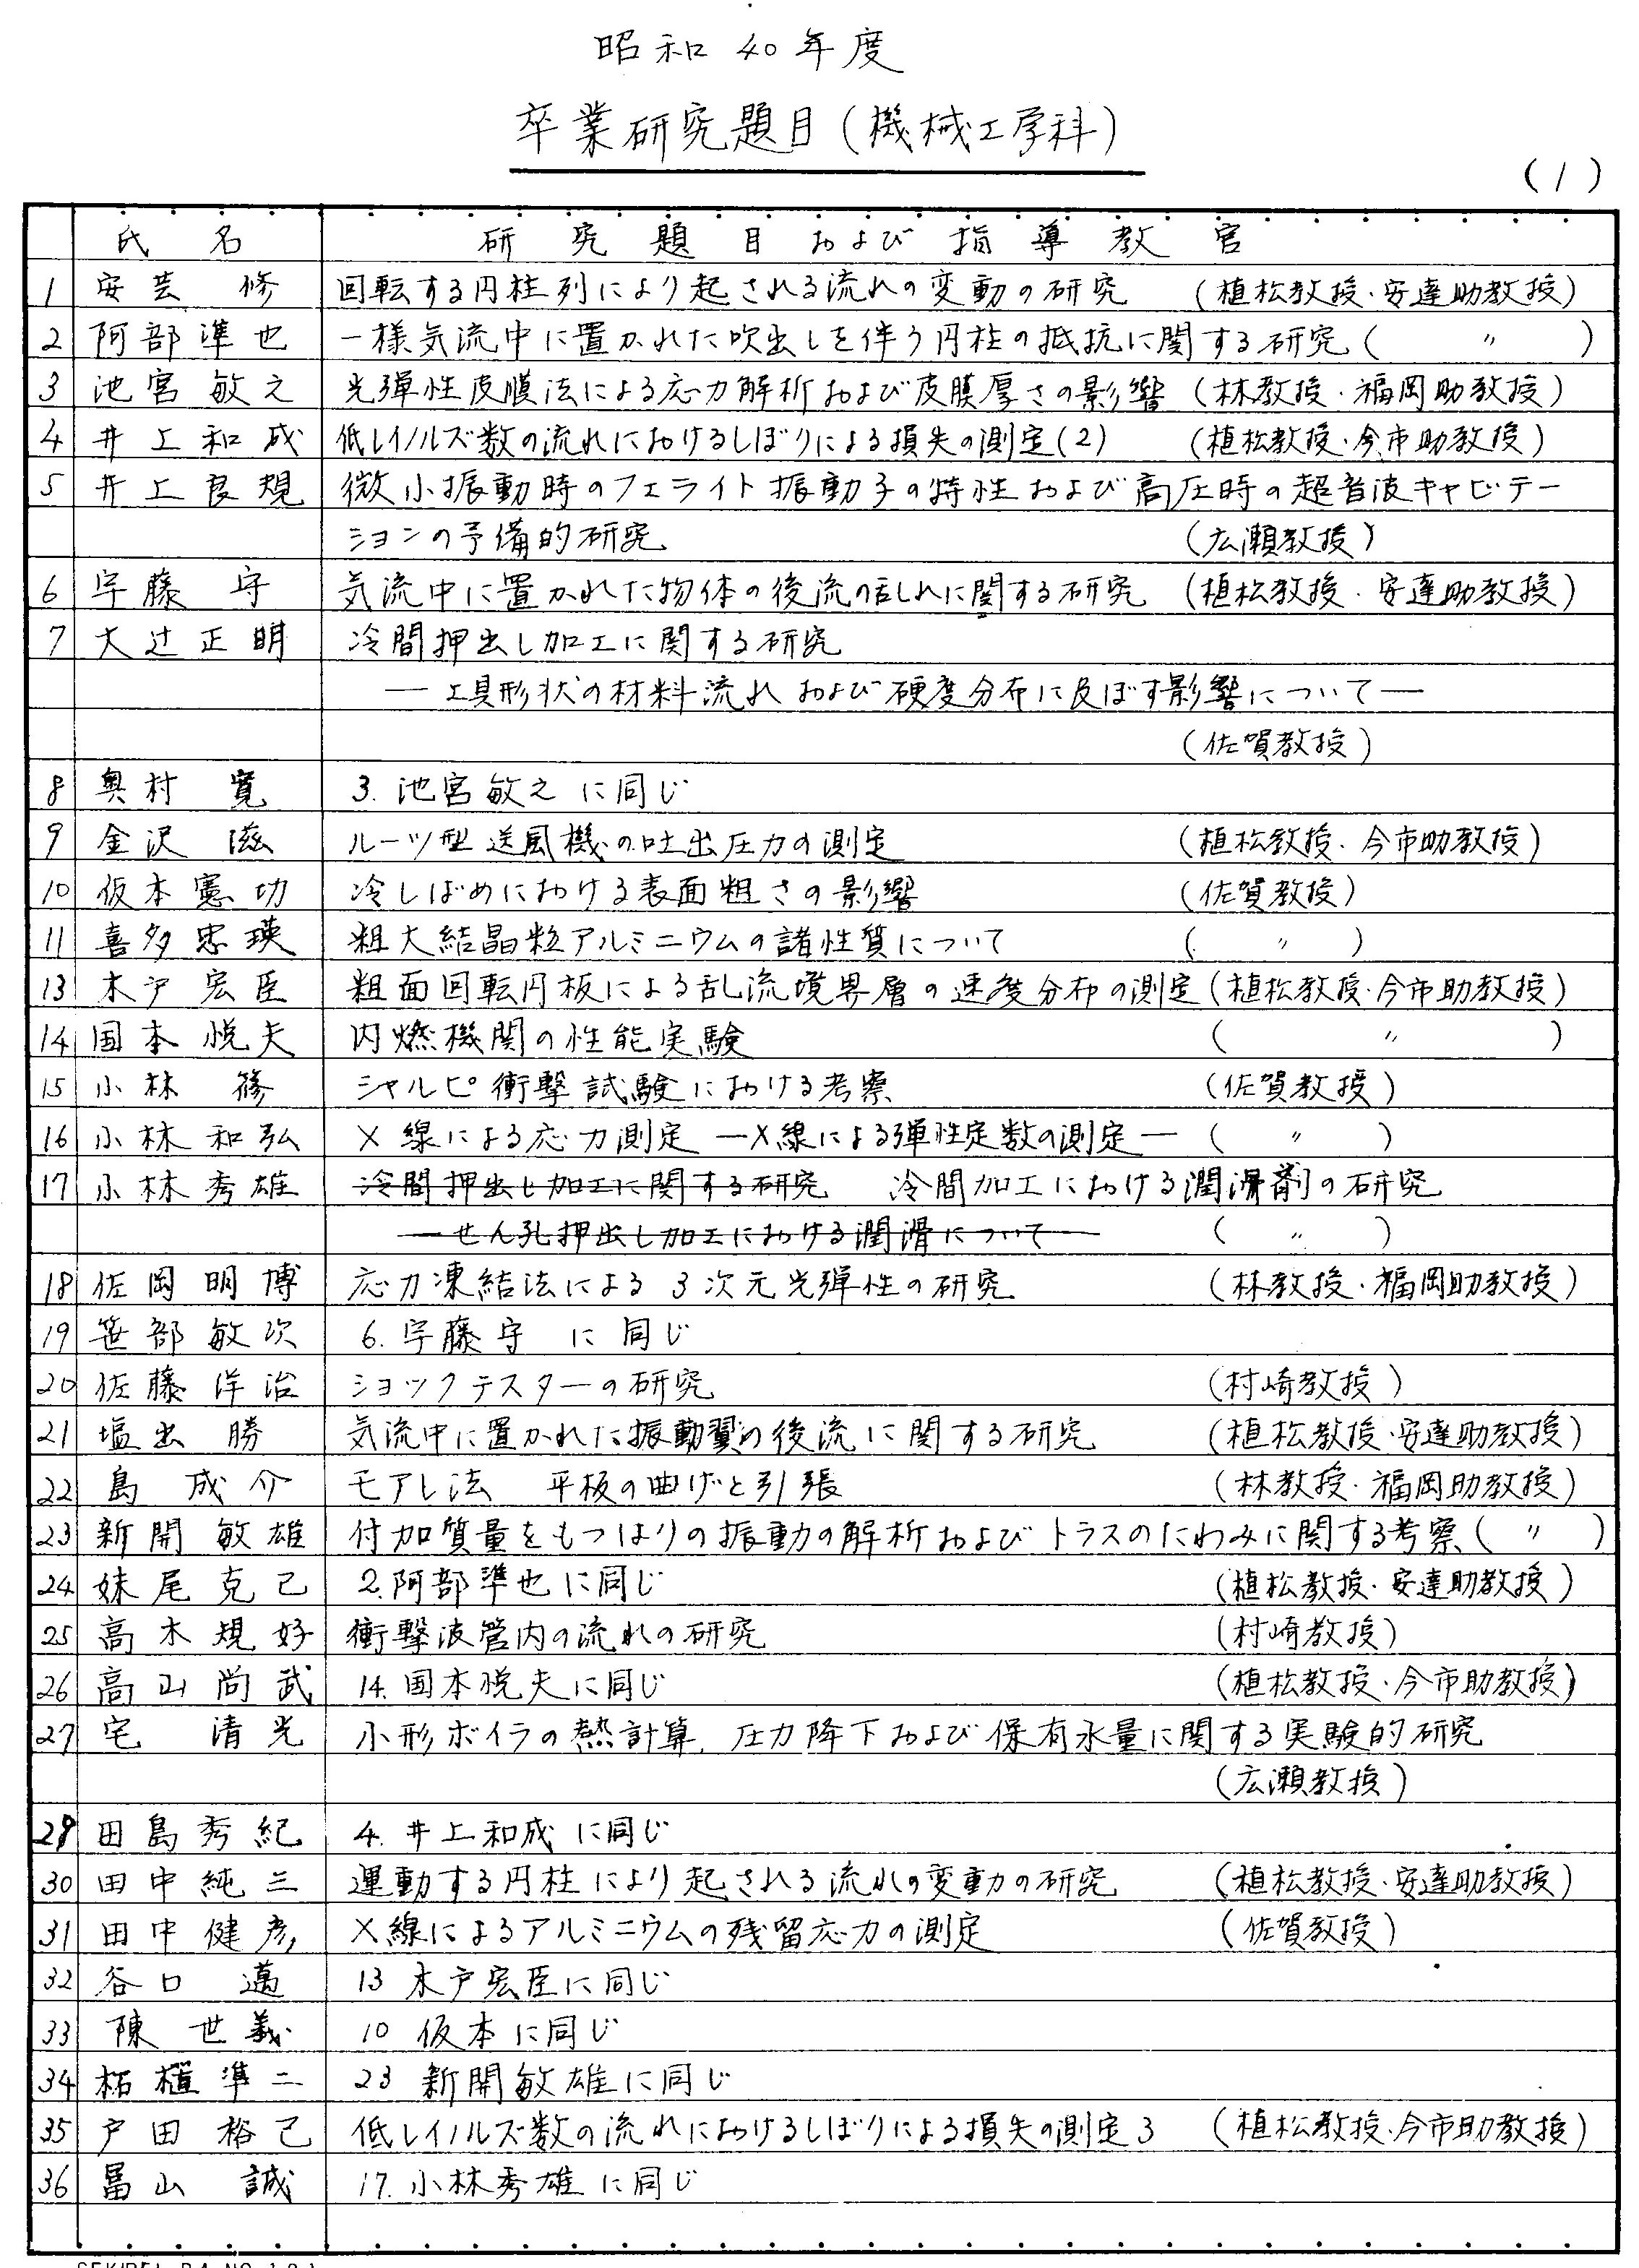 昭和40年度
卒業研究題目(機械工学科)
(1)
氏名 研究題目および指導教官
1 安芸 修 回転する円柱列により起される流れの変動の研究 (植松教授・安達助教授)
2 阿部準也 一様気流中に置かれた吹出しを伴う円柱の抵抗に関する研究 ( 〃 )
3 池宮敏之 光弾性皮膜法による応力解析および皮膜厚さの影響 (林教授・福岡助教授)
4 井上和成 低レイノルズ数の流れにおけるしぼりによる損失の測定(2) (植松教授・今市助教授)
5 井上良規 微小振動時のフェライト振動子の特性および高圧時の超音波キャビテー
ションの予備的研究 (広瀬教授)
6 宇藤 守 気流中に置かれた物体の後流の乱れに関する研究 (植松教授・安達助教授)
7 大辻正明 冷間押出し加工に関する研究
―工具形状の材料流れおよび硬度分布に及ぼす影響について―
(佐賀教授)
8 奥村 寛 3. 池宮敏之に同じ
9 金沢 滋 ルーツ型送風機の吐出圧力の測定 (植松教授・今市助教授)
10 仮本憲功 冷しばめにおける表面粗さの影響 (佐賀教授)
11 喜多忠瑛 粗大結晶粒アルミニウムの諸性質について ( 〃 )
13 木戸宏臣 粗面回転円板による乱流境界層の速度分布の測定 (植松教授・今市助教授)
14 国本悦夫 内燃機関の性能実験 ( 〃 )
15 小林 篠 シャルピ衝撃試験における考察 (佐賀教授)
16 小林和弘 X線による応力測定 ―X線による弾性定数の測定― ( 〃 )
17 小林秀雄 冷間押出し加工に関する研究 冷間加工における潤滑剤の研究
―せん孔押出し加工における潤滑について― ( 〃 )
18 佐岡明博 応力凍結法による3次元光弾性の研究 (林教授・福岡助教授)
19 笹部敏次 6. 宇藤守 に同じ
20 佐藤洋治 ショックテスターの研究 (村崎教授)
21 塩出 勝 気流中に置かれた振動翼の後流に関する研究 (植松教授・安達助教授)
22 島 成介 モアレ法 平板の曲げと引張 (林教授・福岡助教授)
23 新開敏雄 付加質量をもつはりの振動の解析およびトラスのたわみに関する考察 ( 〃 )
24 妹尾克己 2.阿部準也に同じ (植松教授・安達助教授)
25 高木規好 衝撃波管内の流れの研究 (村崎教授)
26 高山尚武 14. 国本悦夫に同じ (植松教授・今市助教授)
27 宅 清光 小形ボイラの熱計算, 圧力降下および保有水量に関する実験的研究
(広瀬教授)
29 田島秀紀 4. 井上和成に同じ
30 田中純三 運動する円柱により起される流れの変動の研究 (植松教授・安達助教授)
31 田中健彦 X線によるアルミニウムの残留応力の測定 (佐賀教授)
32 谷口 邁 13 木戸宏臣に同じ
33 陳 世義 10 仮本に同じ
34 柘植準二 23 新開敏雄に同じ
35 戸田裕己 低レイノルズ数の流れにおけるしぼりによる損失の測定3 (植松教授・今市助教授)
36 畠山 誠 17. 小林秀雄に同じ